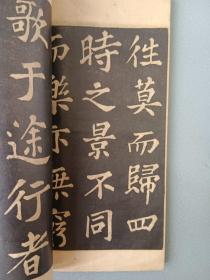 往莫而歸四
時之景不同
而樂亦無窮
歌于途行者